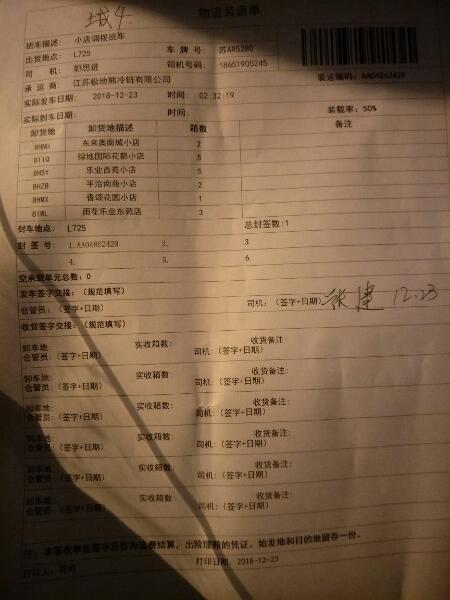 城4
物流装运单
班车描述: 小店调拨班车
出货地点: L725 车 牌 号 苏AR5280
司 机: 郭思进 司机号码: 18651905245
承 运 商 江苏极地熊冷链有限公司 装运编码: AA04862429
实际发车日期: 2018-12-23 时间: 02:32:19
实际到车日期: 时间: 装载率: 50%
卸货地 卸货地描述 箱数 备注
8HNU 东来奥南城小店 2
8IIQ 绿地国际花都小店 5
8HSY 乐业西苑小店 5
8HZB 平治南苑小店 2
8HMX 香颂花园小店 1
81WL 雨花乐业东苑店 3
封车地点: L725 总封签数:1
封 签 号: 1.AA04862429 2. 3.
4. 5. 6.
空承载单元总数: 0
发车签字交接: (规范填写)
仓管员: (签字+日期) 司机: (签字+日期) 12.23
收货签字交接: (规范填写)
卸车地: 实收箱数: 收货备注:
仓管员: (签字+日期) 司机: (签字+日期)
卸车地: 实收箱数: 收货备注:
仓管员: (签字+日期) 司机: (签字+日期)
卸车地: 实收箱数: 收货备注:
仓管员: (签字+日期) 司机: (签字+日期)
卸车地: 实收箱数: 收货备注:
仓管员: (签字+日期) 司机: (签字+日期)
卸车地: 实收箱数: 收货备注:
仓管员: (签字+日期) 司机: (签字+日期)
卸车地: 实收箱数: 收货备注:
仓管员: (签字+日期) 司机: (签字+日期)
注: 本签收单在签字后作为运费结算, 出险理赔的凭证。始发地和目的地留存一份。
打印人: 打印日期: 2018-12-23